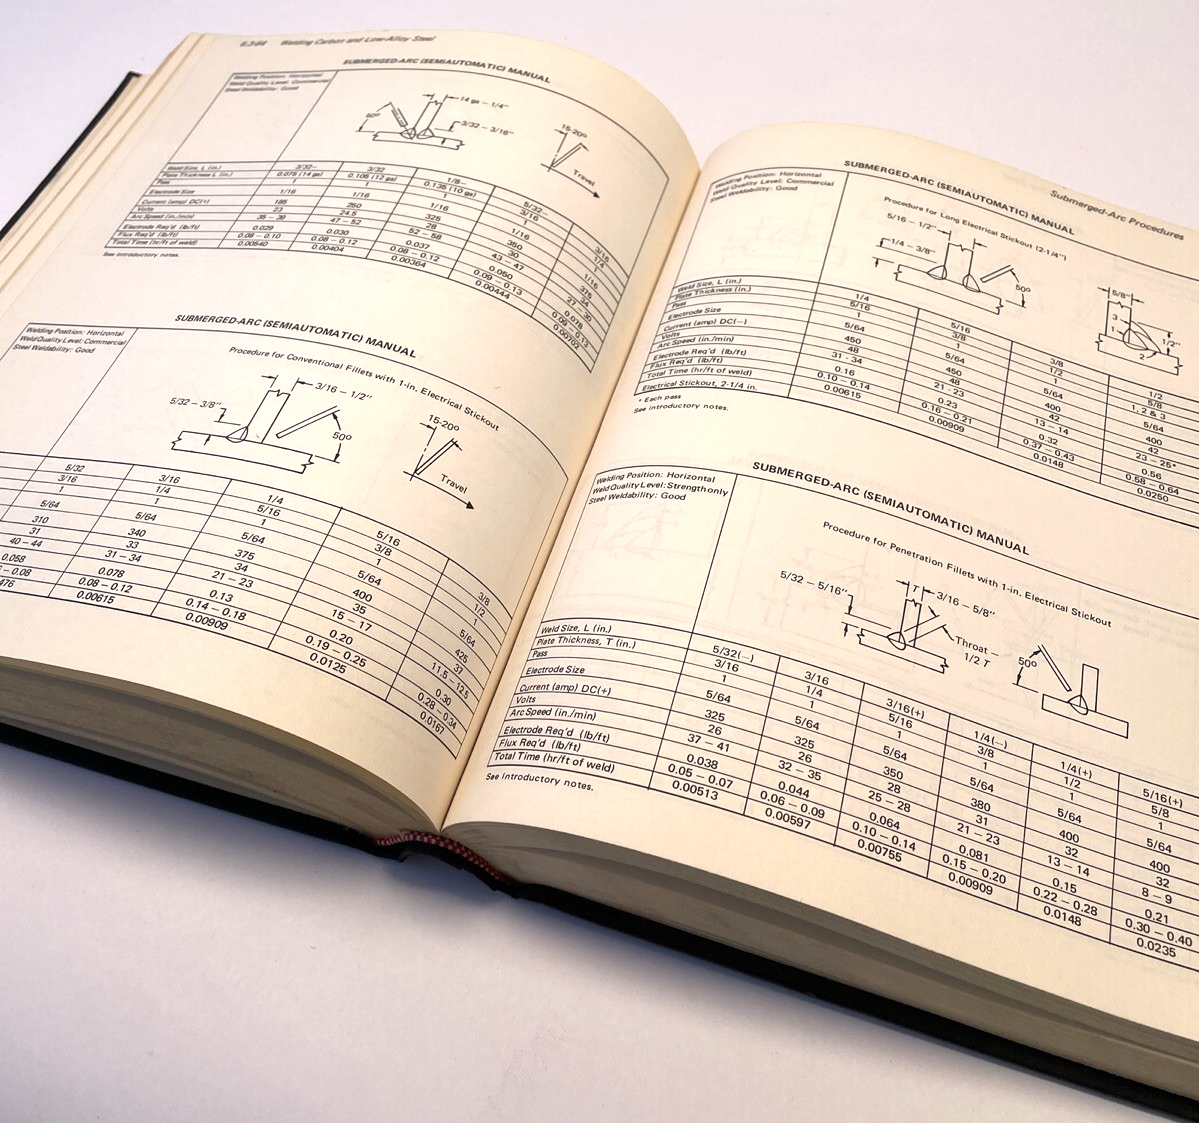 6.3-64 Welding Carbon and Low-Alloy Steel
SUBMERGED-ARC (SEMIAUTOMATIC) MANUAL
Welding Position: Horizontal
Weld Quality Level: Commercial
Steel Weldability: Good
14 ga – 1/4"
50º
3/32 – 3/16"
15-20º
Travel
Weld Size, L (in.) 3/32– 3/32 1/8– 5/32– 3/16
Plate Thickness L (in.) 0.075 (14 ga) 0.105 (12 ga) 0.135 (10 ga) 3/16 1/4
Pass 1 1 1 1
Electrode Size 1/16 1/16 1/16 1/16 1/16
Current (amp) DC(+) 185 250 325 350 375
Volts 23 24.5 28 30 34
Arc Speed (in./min) 35 – 39 47 – 52 52 – 58 43 – 47 27 – 30
Electrode Req'd (lb/ft) 0.029 0.030 0.037 0.050 0.078
Flux Req'd (lb/ft) 0.08 – 0.10 0.08 – 0.12 0.08 – 0.12 0.09 – 0.13
Total Time (hr/ft of weld) 0.00540 0.00404 0.00364 0.00444 0.00702
See introductory notes.
SUBMERGED-ARC (SEMIAUTOMATIC) MANUAL
Welding Position: Horizontal
Weld Quality Level: Commercial
Steel Weldability: Good
Procedure for Conventional Fillets with 1-in. Electrical Stickout
3/16 – 1/2"
5/32 – 3/8"
50º
15-20º
Travel
5/32 3/16 1/4 5/16 3/8
3/16 1/4 5/16 3/8 1/2
1 1 1 1
5/64 5/64 5/64 5/64 5/64
310 340 375 400 425
31 33 34 35 37
40 – 44 31 – 34 21 – 23 15 – 17 11.5 – 12.5
0.058 0.078 0.13 0.20 0.30
– 0.08 0.08 – 0.12 0.14 – 0.18 0.19 – 0.25 0.28 – 0.34
476 0.00615 0.00909 0.0125 0.0167
Submerged-Arc Procedures
SUBMERGED-ARC (SEMIAUTOMATIC) MANUAL
Welding Position: Horizontal
Weld Quality Level: Commercial
Steel Weldability: Good
Procedure for Long Electrical Stickout (2-1/4")
5/16 – 1/2"
1/4 – 3/8"
50º
5/8"
3
1
2
1/2"
Weld Size, L (in.) 1/4 5/16 3/8 1/2
Plate Thickness (in.) 5/16 3/8 1/2 5/8
Pass 1 1 1 1, 2 & 3
Electrode Size 5/64 5/64 5/64 5/64
Current (amp) DC(–) 450 450 400 400
Volts 48 48 42 42
Arc Speed (in./min) 31 - 34 21 - 23 13 – 14 23 – 25*
Electrode Req'd (lb/ft) 0.16 0.23 0.32 0.56
Flux Req'd (lb/ft) 0.10 – 0.14 0.16 – 0.21 0.37 – 0.43 0.58 – 0.64
Total Time (hr/ft of weld) 0.00615 0.00909 0.0148 0.0250
Electrical Stickout, 2-1/4 in.
* Each pass
See introductory notes.
SUBMERGED-ARC (SEMIAUTOMATIC) MANUAL
Welding Position: Horizontal
Weld Quality Level: Strength only
Steel Weldability: Good
Procedure for Penetration Fillets with 1-in. Electrical Stickout
T
5/32 – 5/16"
3/16 – 5/8"
Throat –
1/2 T
50º
Weld Size, L (in.) 5/32(–) 3/16 3/16(+) 1/4(–) 1/4(+) 5/16(+)
Plate Thickness, T (in.) 3/16 1/4 5/16 3/8 1/2 5/8
Pass 1 1 1 1 1 1
Electrode Size 5/64 5/64 5/64 5/64 5/64 5/64
Current (amp) DC(+) 325 325 350 380 400 400
Volts 26 26 28 31 32 32
Arc Speed (in./min) 37 – 41 32 – 35 25 – 28 21 – 23 13 – 14 8 – 9
Electrode Req'd (lb/ft) 0.038 0.044 0.064 0.081 0.15 0.21
Flux Req'd (lb/ft) 0.05 – 0.07 0.06 – 0.09 0.10 – 0.14 0.15 – 0.20 0.22 – 0.28 0.30 – 0.40
Total Time (hr/ft of weld) 0.00513 0.00597 0.00755 0.00909 0.0148 0.0235
See introductory notes.